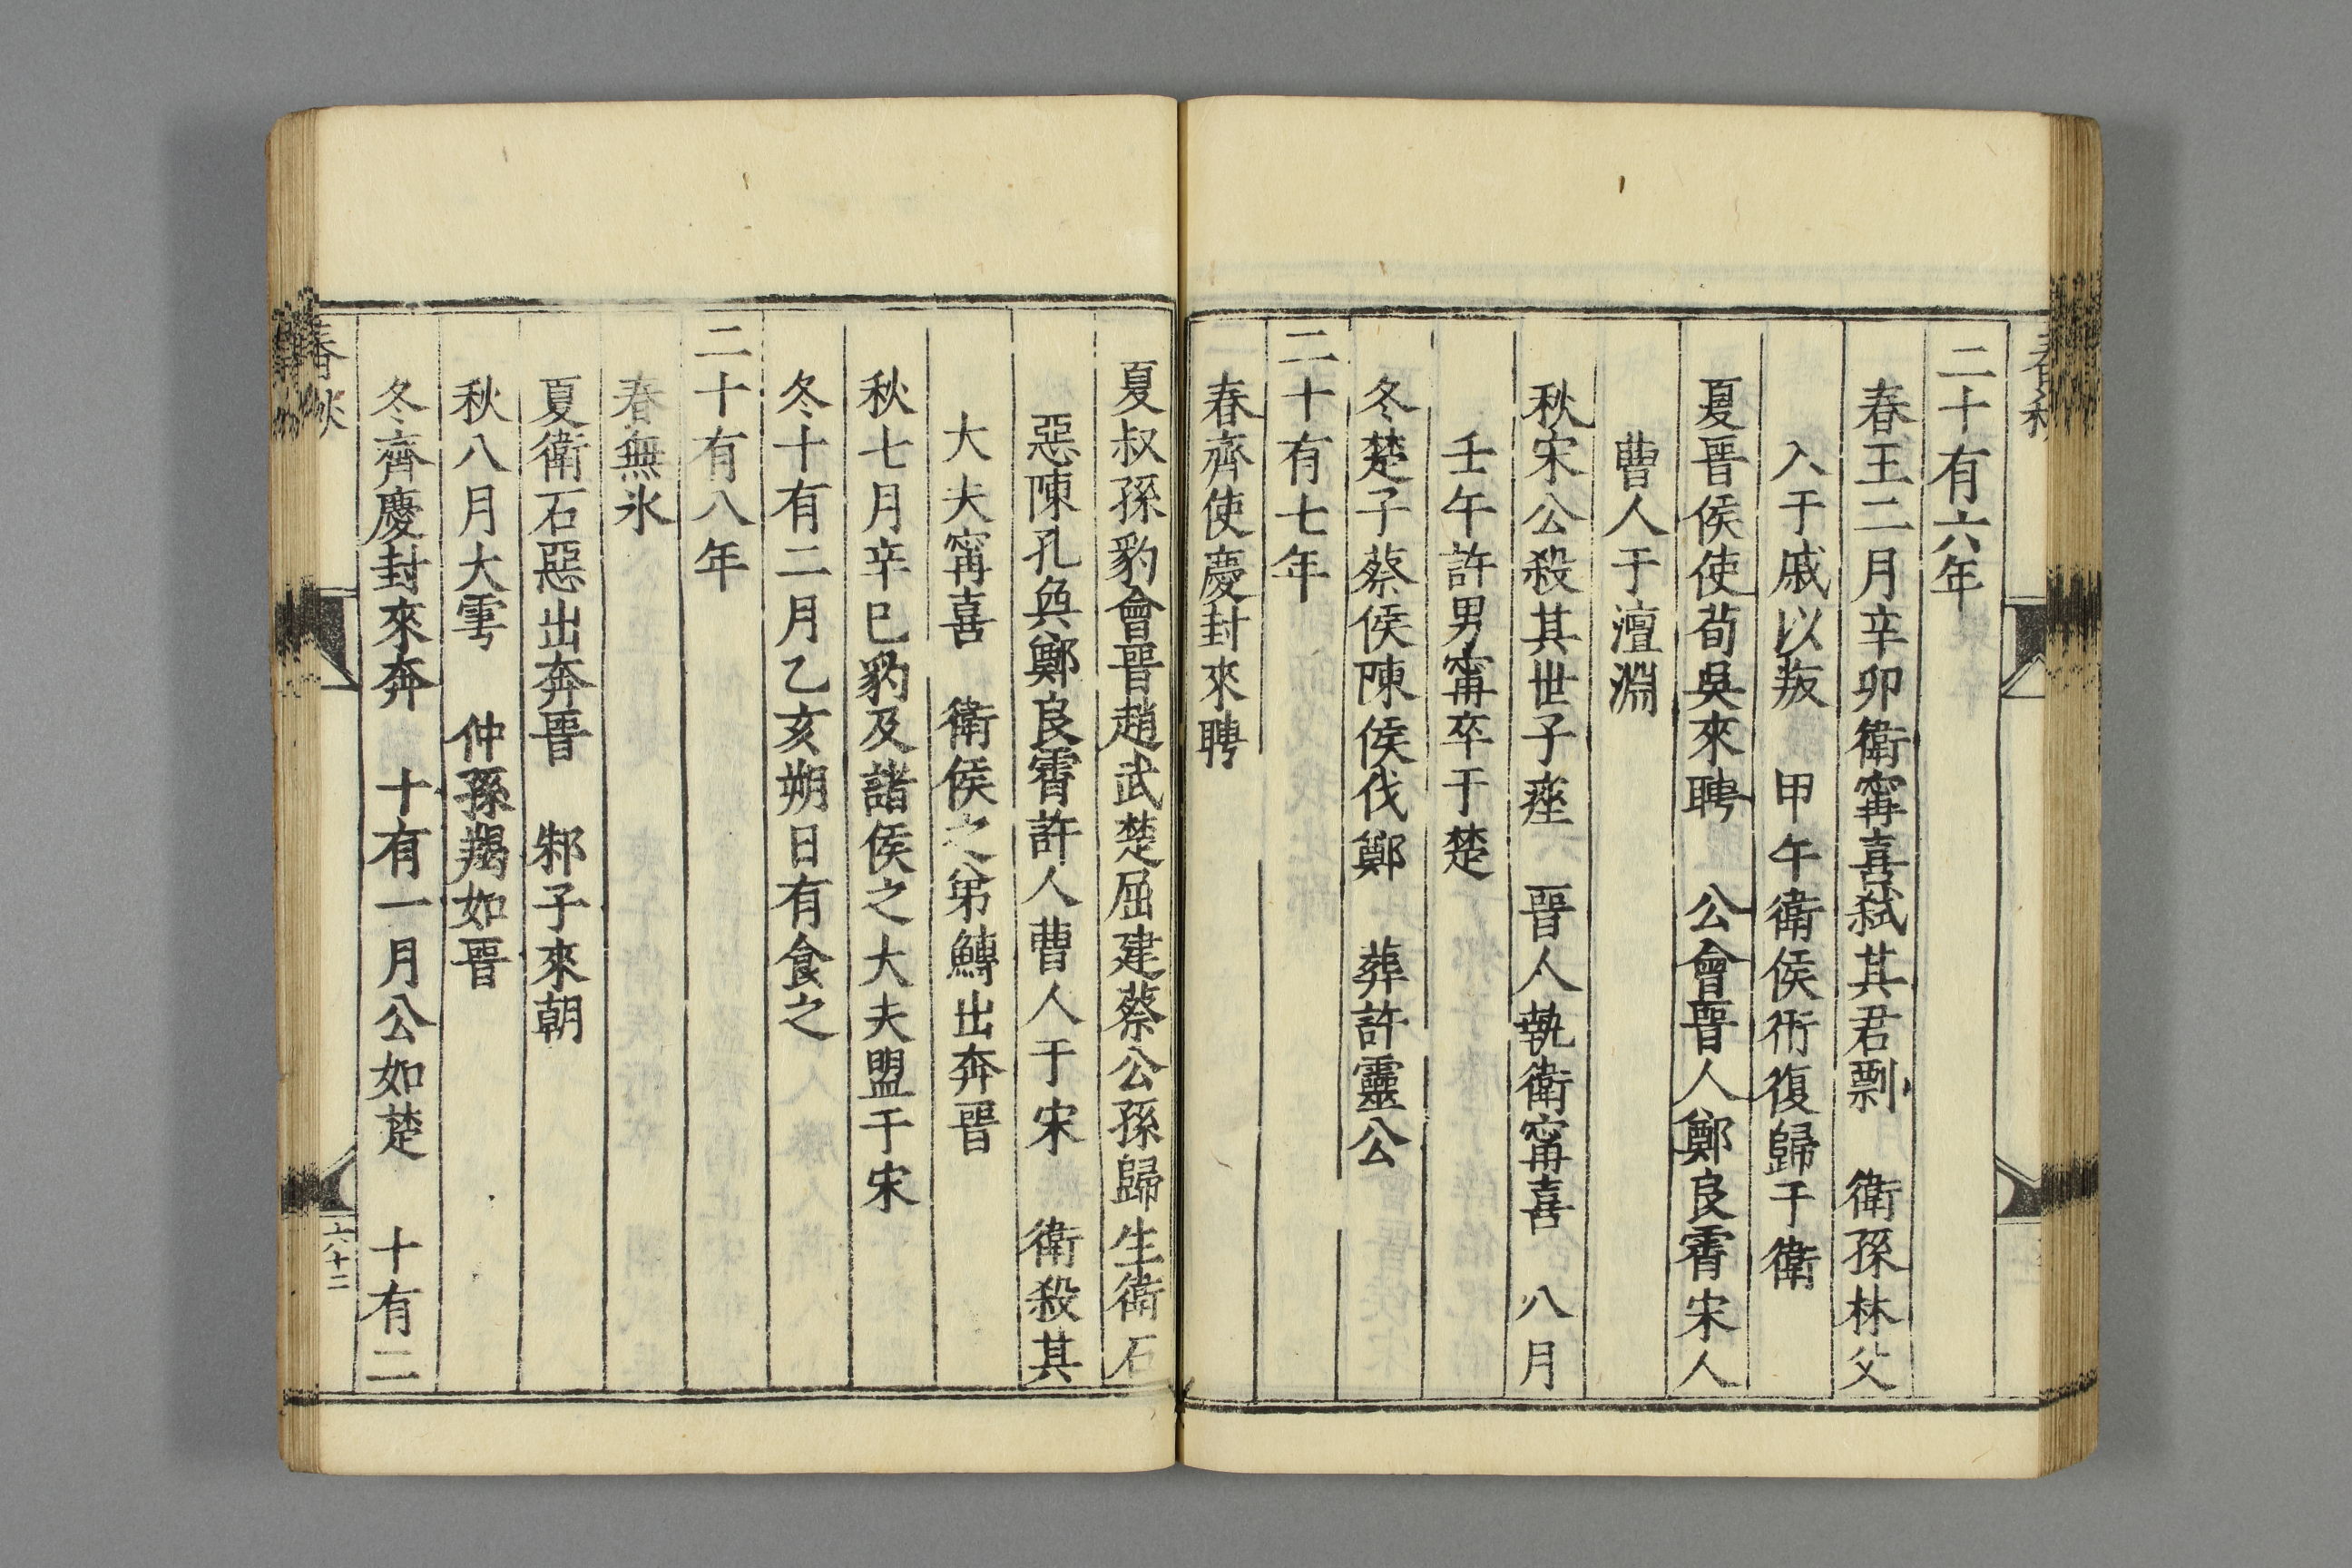 二十有六年
春王二月辛卯衛甯喜弒其君剽　衛孫林父
入于戚以叛　甲午衛侯衎復歸于衛
夏晉侯使荀吳來聘　公會晉人鄭良霄宋人
曹人于澶淵
秋宋公殺其世子痤　晉人執衛甯喜　八月
壬午許男甯卒于楚
冬楚子蔡侯陳侯伐鄭　葬許靈公
二十有七年
春齊使慶封來聘
夏叔孫豹會晉趙武楚屈建蔡公孫歸生衛石
惡陳孔奐鄭良霄許人曹人于宋　衛殺其
大夫甯喜　衛侯之弟鱄出奔晉
秋七月辛巳豹及諸侯之大夫盟于宋
冬十有二月乙亥朔日有食之
二十有八年
春無氷
夏衛石惡出奔晉　邾子來朝
秋八月大雩　仲孫羯如晉
冬齊慶封來奔　十有一月公如楚　十有二
春秋
六十二